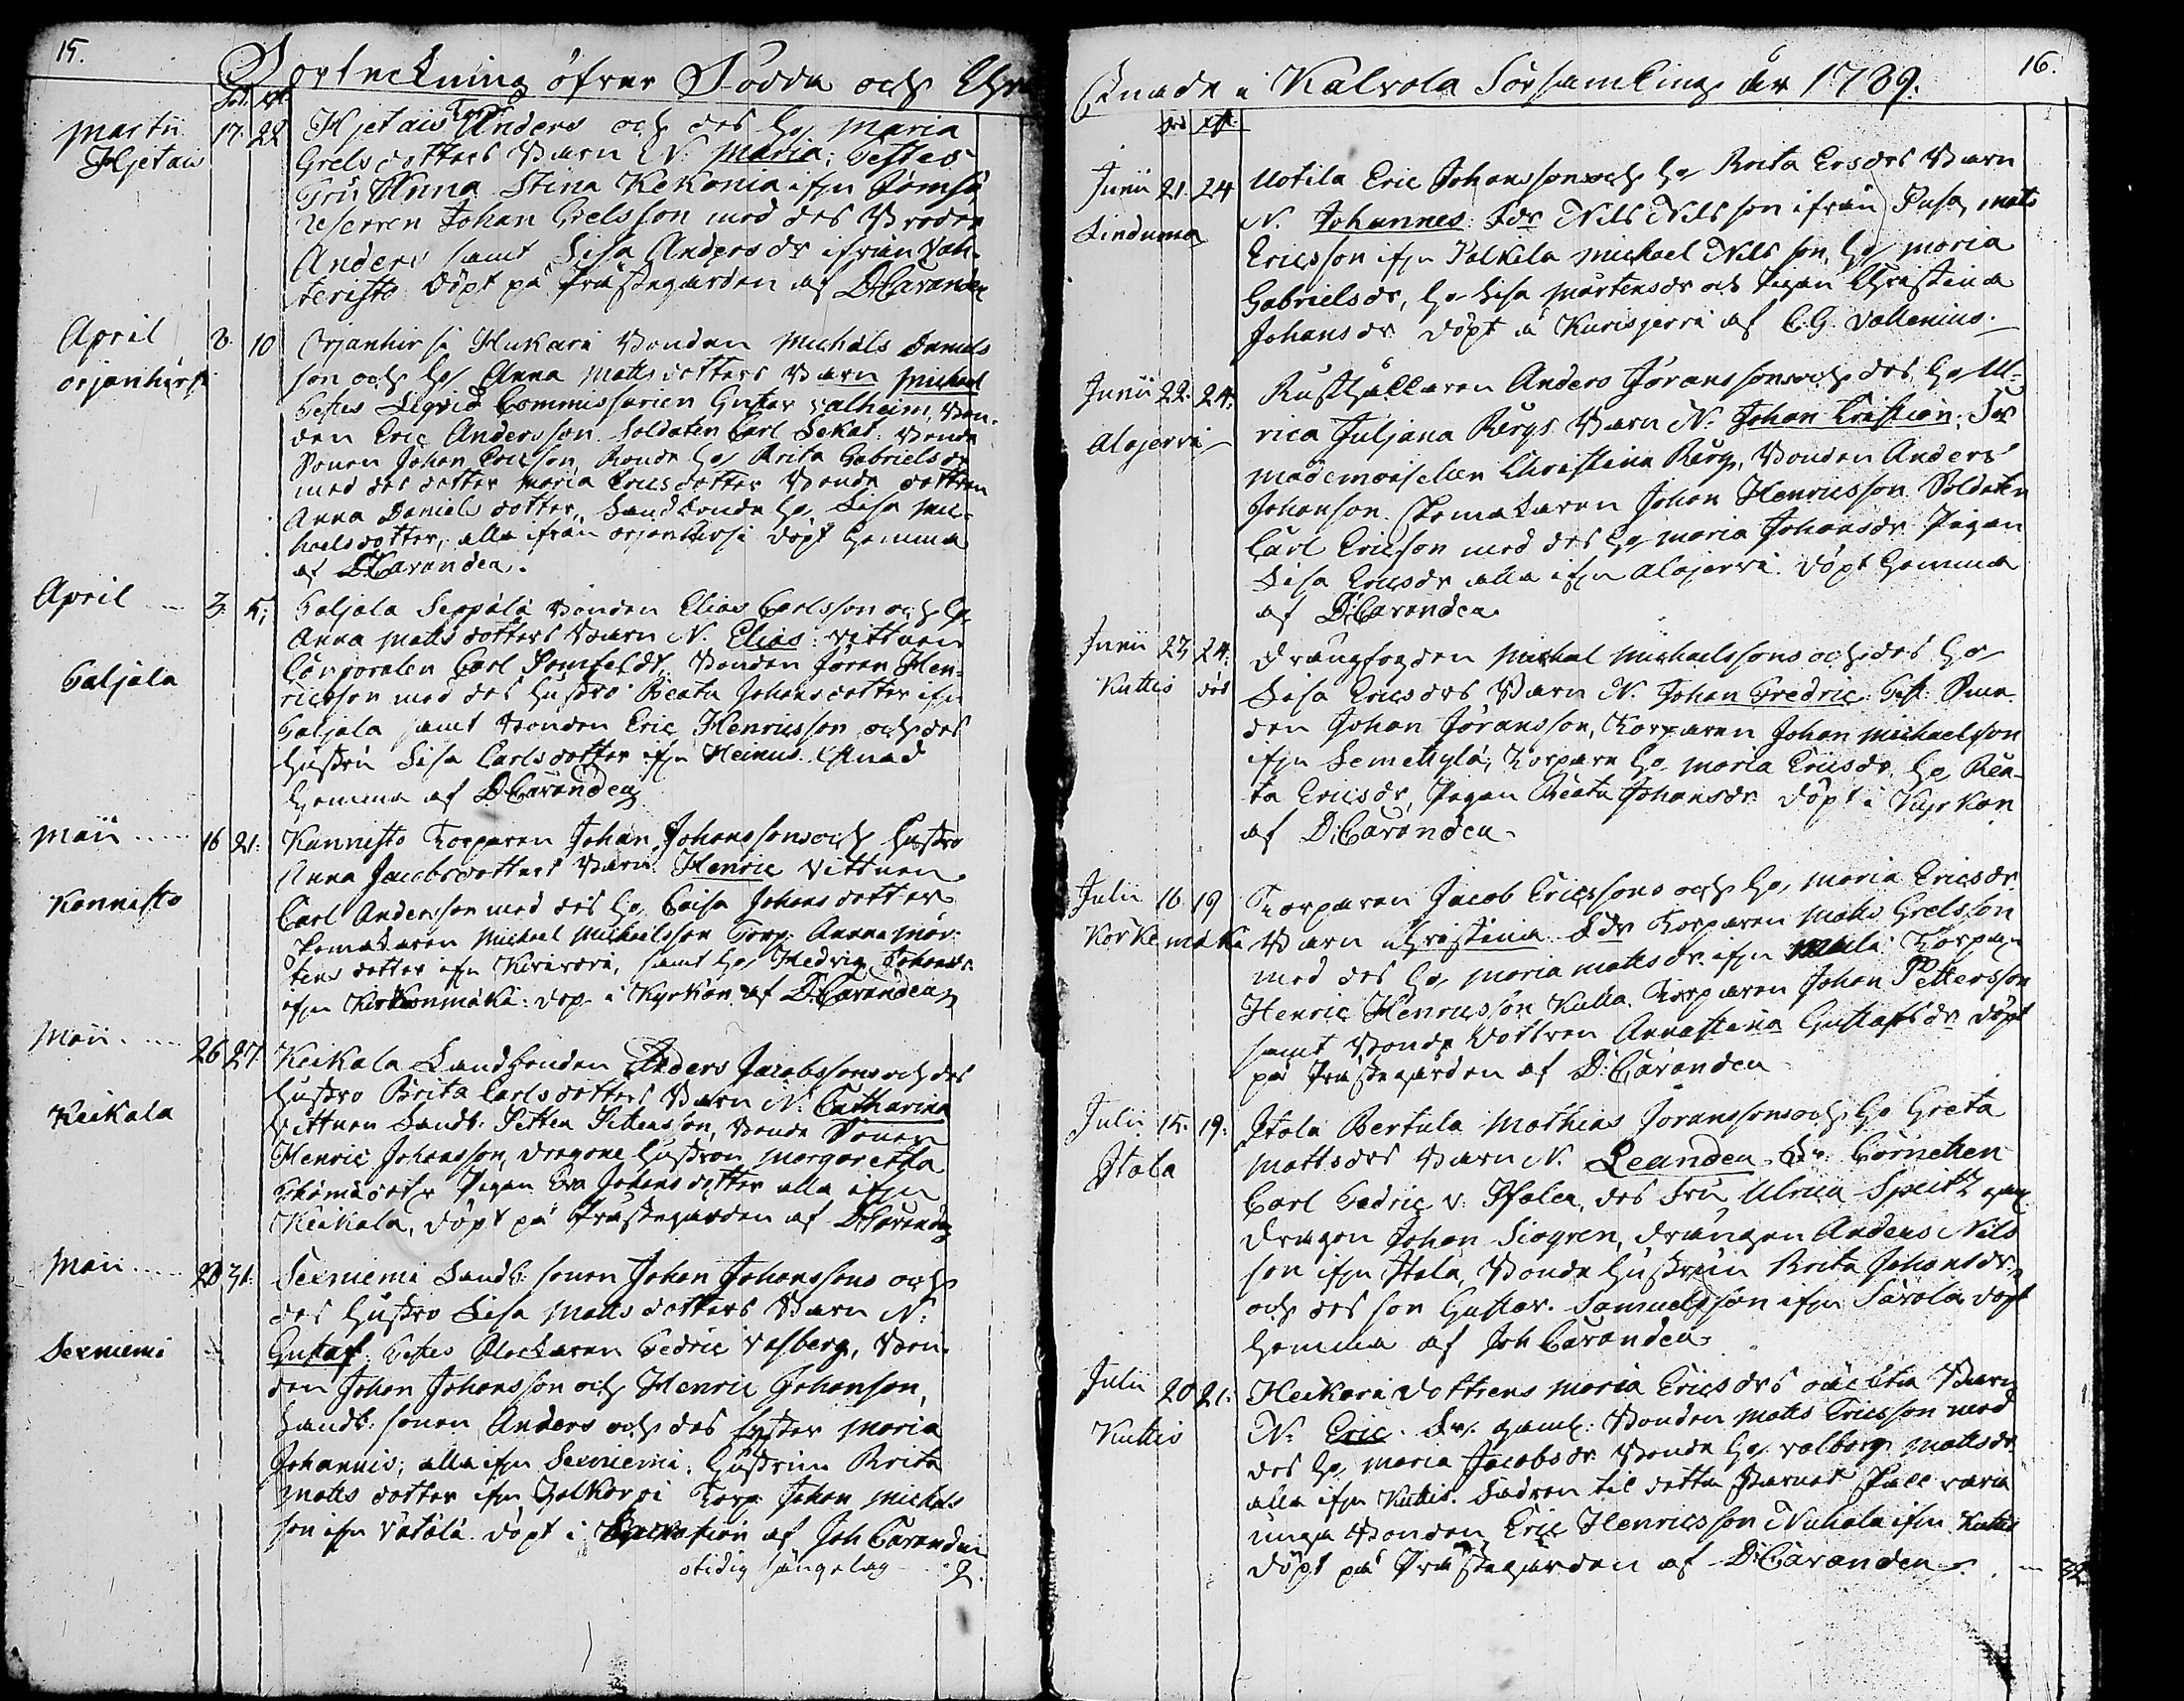 15.
Förteckning öfver Födda och Chr
föd. xst.
Martii 17. 28 Hjetais Torp Anders och des Ho Maria
Hjetais Grelsdotters Barn N. Maria: Testes
Fru Anna Stina Kekonia ifrn Jomsö,
Reserven Johan Grelsson med des Broder
Anders samt Lisa Andersdr ifrån Vah-
teristo döpt på Prästegården af D: Carandea
April 3. 10 Orjanhirsi Hukari Bonden Michäls Daniels
orjanhirsi son och Ho Anna Mattsdotters Barn Michael
Testes Liqvid Commissarien Gustav valheim, Bon-
den Eric Andersson Soldaten Carl Sekat: Bonde
Sonen Johan Ericson, Bonde Ho Brita Gabrielsdr
med des dotter Maria Ericsdotter Bonde dottren
Anna Daniels dotter, Landbonde Ho Lisa Mic-
haelsdotter, alla ifrån orjanhirsi döpt hemma
af D: Carandea.
April 3. 5. Taljala Seppälä Bonden Elias Carlsson och Ho
Anna Matts dotters Barn N. Elias: vittnen
Taljala Corporalen Carl Bonden Jöran Hen-
ricsson med des Hustro Beata Johansdotter ifrn
Taljala samt Bonden Eric Henricsson och des
Hustru Lisa Carlsdotter ifrn Heinus. Xstnad
hemma af D: Carandea
Maii 16 21. Kannisto Torparen Johan Johanssons och Hustro
Anna Jacobsdotters Barn Henric Vittnen
Kannisto Carl Andersson med des Ho Caisa Johansdotter
Skomakaren Michael Michaelsson Torp. Anna Mår-
tens dotter ifrn samt Ho Hedvig Johansdr
ifrn Kirkonmäki: döp. i Kyrkan af D: Carandea
Maii 26 27 Keikala Landbonden Anders Jacobssons och des
Hustro Brita Carlsdotters Barn N: Catharina
Keikala Vittnen Landb: Petter Pettersson, Bonde Sonen
Henric Johansson, dragone Hustron Margaretha
Pigan Eva Johansdotter alla ifrn
Keikala, döpt på Prästegården af D: Carandea
Maii 28 31. Sexniemi Landb: sonen Johan Johanssons och
des Hustro Lisa Matts dotters Barn N:
Sexniemi Gustaf. Testes Klockaren Fedric Vasberg, Bon-
den Johan Johansson och Henric Johanson,
Landb: sonen Anders och des syster Maria
Johannis; alla ifrn Sexniemi. Hustrun Brita
Matts dotter ifrn Jalkarsi Torp. Johan Michels
son ifrn Vätälä döpt i af Joh Carandea
otidig sängelag 2.
16.
Stnade i Kalvola Församling år 1789.
föd xst.
Junii 21. 24 Uotila Eric Johanssons och Ho Brita Ersdrs Barn
Linduma N. Johannes: Fdr Nils Nilsson ifrån Pusa, Mats
Ericsson ifrn Palkila Michael Nilsson, Ho Maria
Gabrielsdr, Ho Lisa Mårtensdr och Pigan Christina
Johansdr döpt i Kurisjervi af C: G. Vallenius.
Junii 22. 24. Rusthållaren Anders Jöranssons och des Ho Ul-
Alajervi rica Juljana Bergs Barn N: Johan Cristian: Fdr
Mademoisellen Christina Berg, Bonden Anders
Johanson Skomakaren Johan Henricsson Soldaten
Carl Ericson med des Ho Maria Johansdr Pigan
Lisa Ersdr alla ifrn Alajervi döpt hemma
af D: Carandea.
Junii 23 24. Drangfogden Mickal Michaelssons och des Ho
Kuttis död Lisa Ericsdrs Barn N. Johan Fredric Test: Sme-
den Johan Joransson, Torparen Johan Michaelsson
ifrn Torpare Ho Maria Ericsdr Ho Bea-
ta Ericsdr, Pigan Beata Johansdr döpt i Kyrkan
af D: Carandea.
Julii 16. 19 Torparen Jacob Ericssons och Ho Maria Ericsdr
Korkemäki Barn Christina Fdr Torparen Matts Grelsson
med des Ho Maria Mattsdr ifrn Torparn
Henric Henricsson Kulla. Torparen Johan Pettersson
samt Bonde Dottren Annastina Gustafsdr döpt
på Prästegården af D: Carandea
Julii 15. 19. Itala Bertula Mathias Joranssons och Ho Greta
Itala Mattsdrs Barn N. Leandea. Fdr Cornetten
Carl Fedric v: Pfaler, des Fru Ulrica Speitz gml
Dragon Johan Siogren, Drängen Anders Nils
son ifrn Itala, Bonde Hustrun Brita Johansdr,
och des son Gustav Samuelsson ifrn Sarola döpt
hemma af Joh Carandea.
Julii 20 21. Heikari Dottrens Maria Ericsdrs oäckta Barn
Kuttis N: Eric. Fdr. gaml: Bonden Matts Ericsson med
des Ho Maria Jacobsdr Bonde Ho valborg Mattsdr
alla ifrn Kuttis. Fadren til detta Barnet skall vara
unga Bonden Eric Henricsson Nuhala ifrn Kuttis
döpt på Prästegården af D: Carandea.